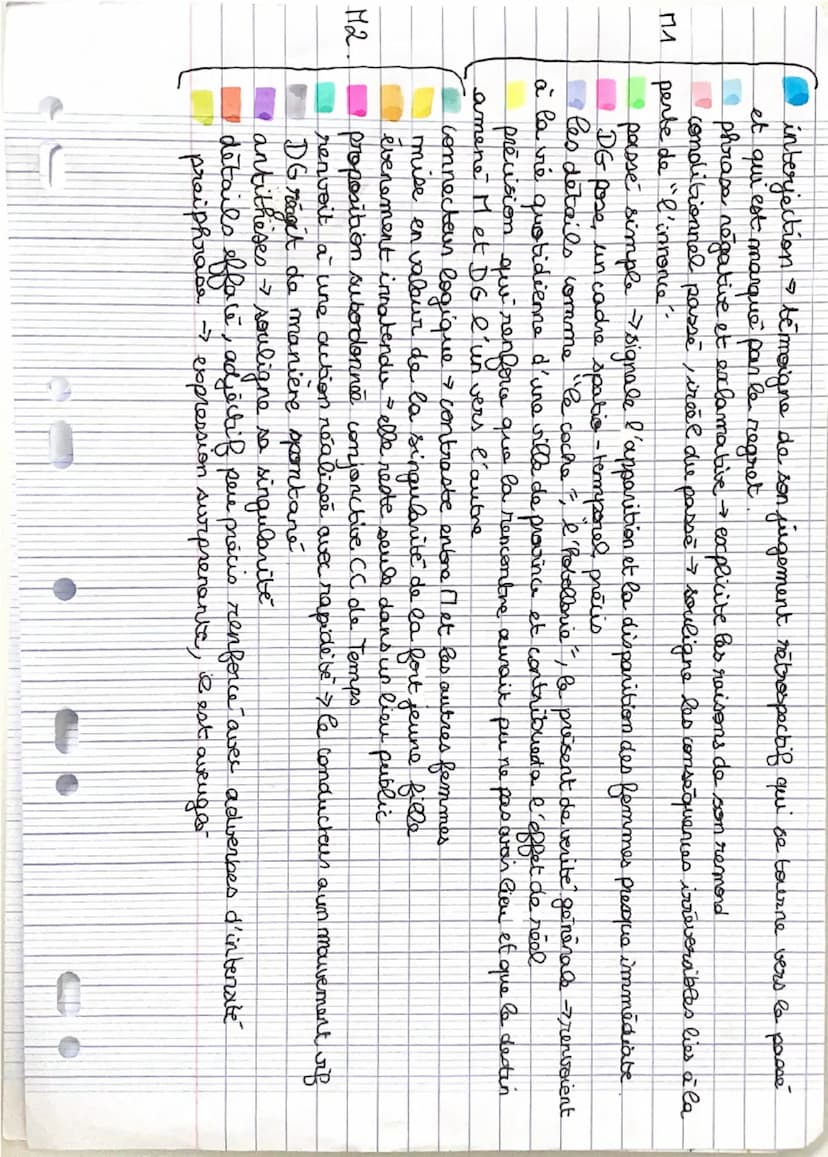 interjection → témoigne de son jugement rétrospectif qui se tourne vers le passé
et qui est marqué par le regret.
phrase négative et exclamative → explicite les raisons de son remord
conditionnel passé, irréel du passé → souligne les conséquences irréversibles liés à la
M1 perte de "l'inronce".
passé simple → signale l'apparition et la disparition des femmes presque immédiate.
DG pose un cadre spatio-temporel précis
les détails comme "le coche", "l'hotellerie", le présent de vérité générale → renvoient
à la vie quotidienne d'une ville de province et contribuent à l'effet de réel
précision qui renforce que la rencontre aurait pu ne pas avoir lieu et que le destin
amené M et DG l'un vers l'autre
connecteur logique → contraste entre M et les autres femmes
mise en valeur de la singularité de la fort jeune fille
évènement innatendu → elle reste seule dans un lieu public
M2. proposition subordonnée conjonctive CC de Temps
renvoit à une action réalisée avec rapidité → le conducteur a un mouvement vif
DG réagit de manière spontané
antithèses → souligne sa singularité
détails effacé, adjectif peu précis renforcé avec adverbes d'intensité
preiphrase → expression surprenante, il est aveuglé